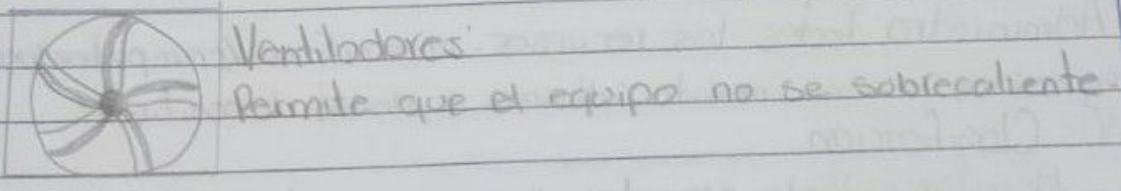 Ventiladores
Permite que el equipo no se sobrecaliente.